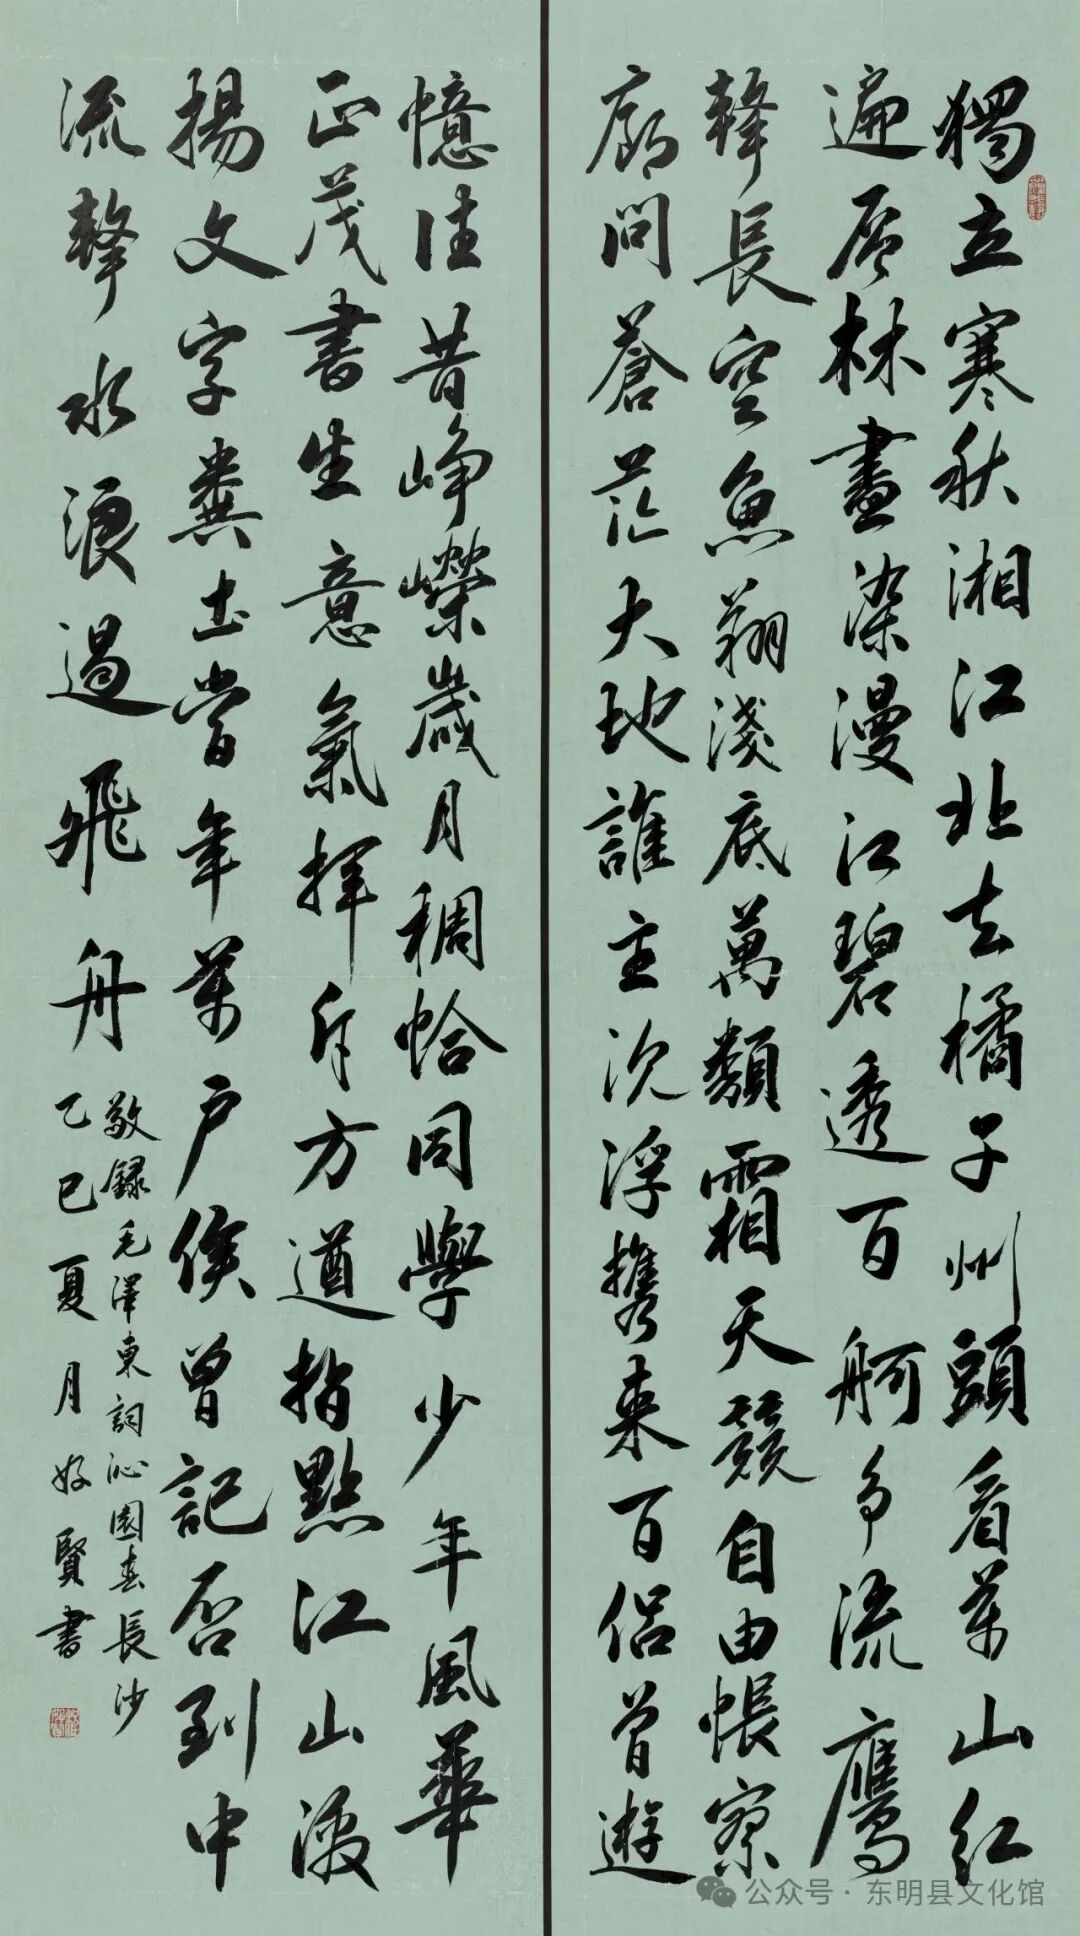 獨立寒秋湘江北去橘子州頭看萬山紅
遍層林盡染漫江碧透百舸爭流鷹
擊長空魚翔淺底萬類霜天競自由悵寥
廓問蒼茫大地誰主沉浮攜來百侶曾遊
憶往昔崢嶸歲月稠恰同學少年風華
正茂書生意氣揮斥方遒指點江山激
揚文字糞土當年萬戶侯曾記否到中
流擊水浪遏飛舟
敬錄毛澤東詞沁園春長沙
乙巳夏月好賢書
公众号·东明县文化馆